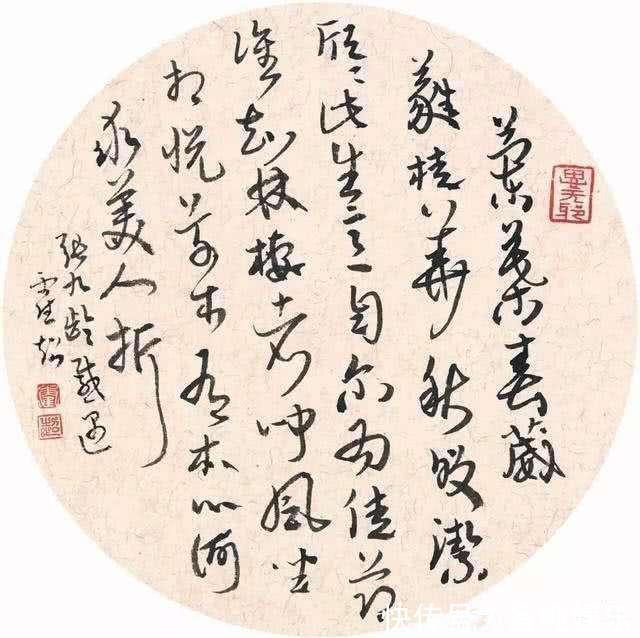 蘭葉春葳
蕤桂華秋皎潔
欣〻此生意自尔为佳節
誰知林棲者聞風坐
相悦草木有本心何
求美人折
張九齡感遇
超
快传号